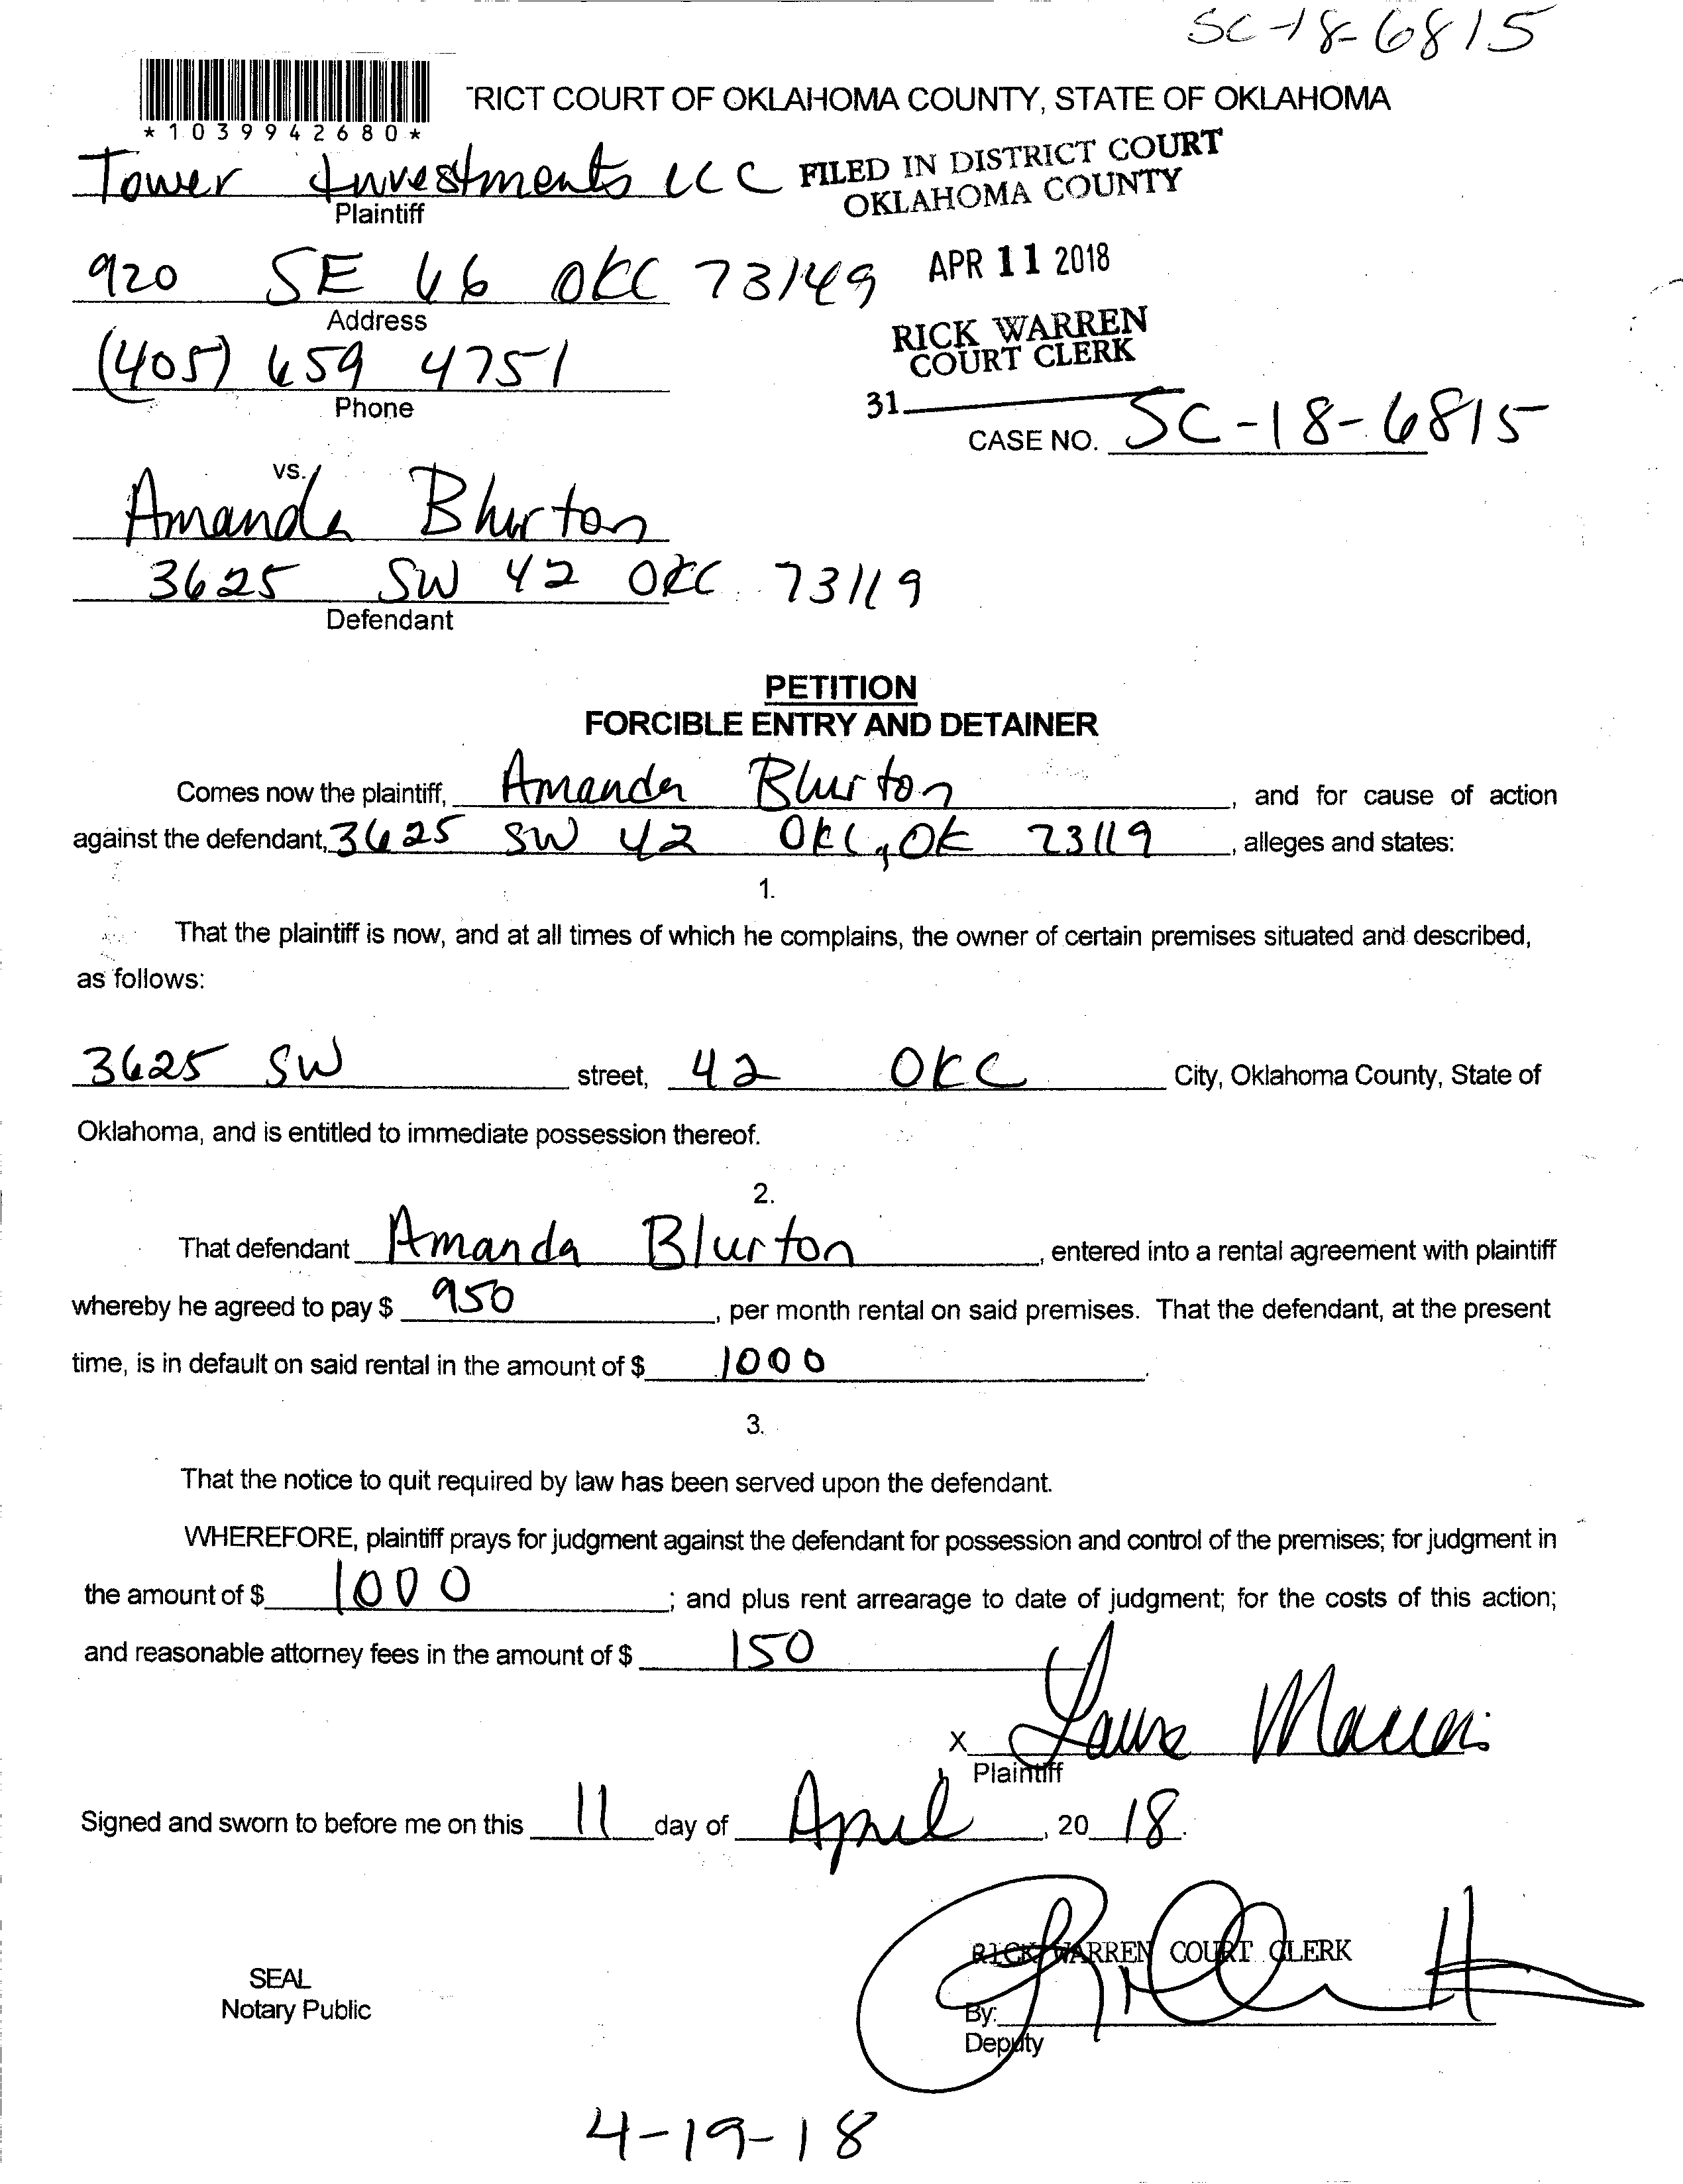 SC-18-6815
*1039942680*
RICT COURT OF OKLAHOMA COUNTY, STATE OF OKLAHOMA
Tower Investments LLC
Plaintiff
FILED IN DISTRICT COURT
OKLAHOMA COUNTY
920 SE 66 OKC 73149
Address
APR 11 2018
(405) 659 4751
Phone
RICK WARREN
COURT CLERK
31
CASE NO. SC-18-6815
vs.
Amanda Blurton
3625 SW 42 OKC 73119
Defendant
PETITION
FORCIBLE ENTRY AND DETAINER
Comes now the plaintiff, Amanda Blurton, and for cause of action
against the defendant, 3625 SW 42 OKC, OK 73119, alleges and states:
1.
That the plaintiff is now, and at all times of which he complains, the owner of certain premises situated and described,
as follows:
3625 SW street, 42 OKC City, Oklahoma County, State of
Oklahoma, and is entitled to immediate possession thereof.
2.
That defendant Amanda Blurton, entered into a rental agreement with plaintiff
whereby he agreed to pay $ 950, per month rental on said premises. That the defendant, at the present
time, is in default on said rental in the amount of $ 1000.
3.
That the notice to quit required by law has been served upon the defendant.
WHEREFORE, plaintiff prays for judgment against the defendant for possession and control of the premises; for judgment in
the amount of $ 1000; and plus rent arrearage to date of judgment; for the costs of this action;
and reasonable attorney fees in the amount of $ 150
X Laura
Plaintiff
Signed and sworn to before me on this 11 day of April, 20 18.
RICK WARREN COURT CLERK
SEAL
Notary Public
By:
Deputy
4-19-18